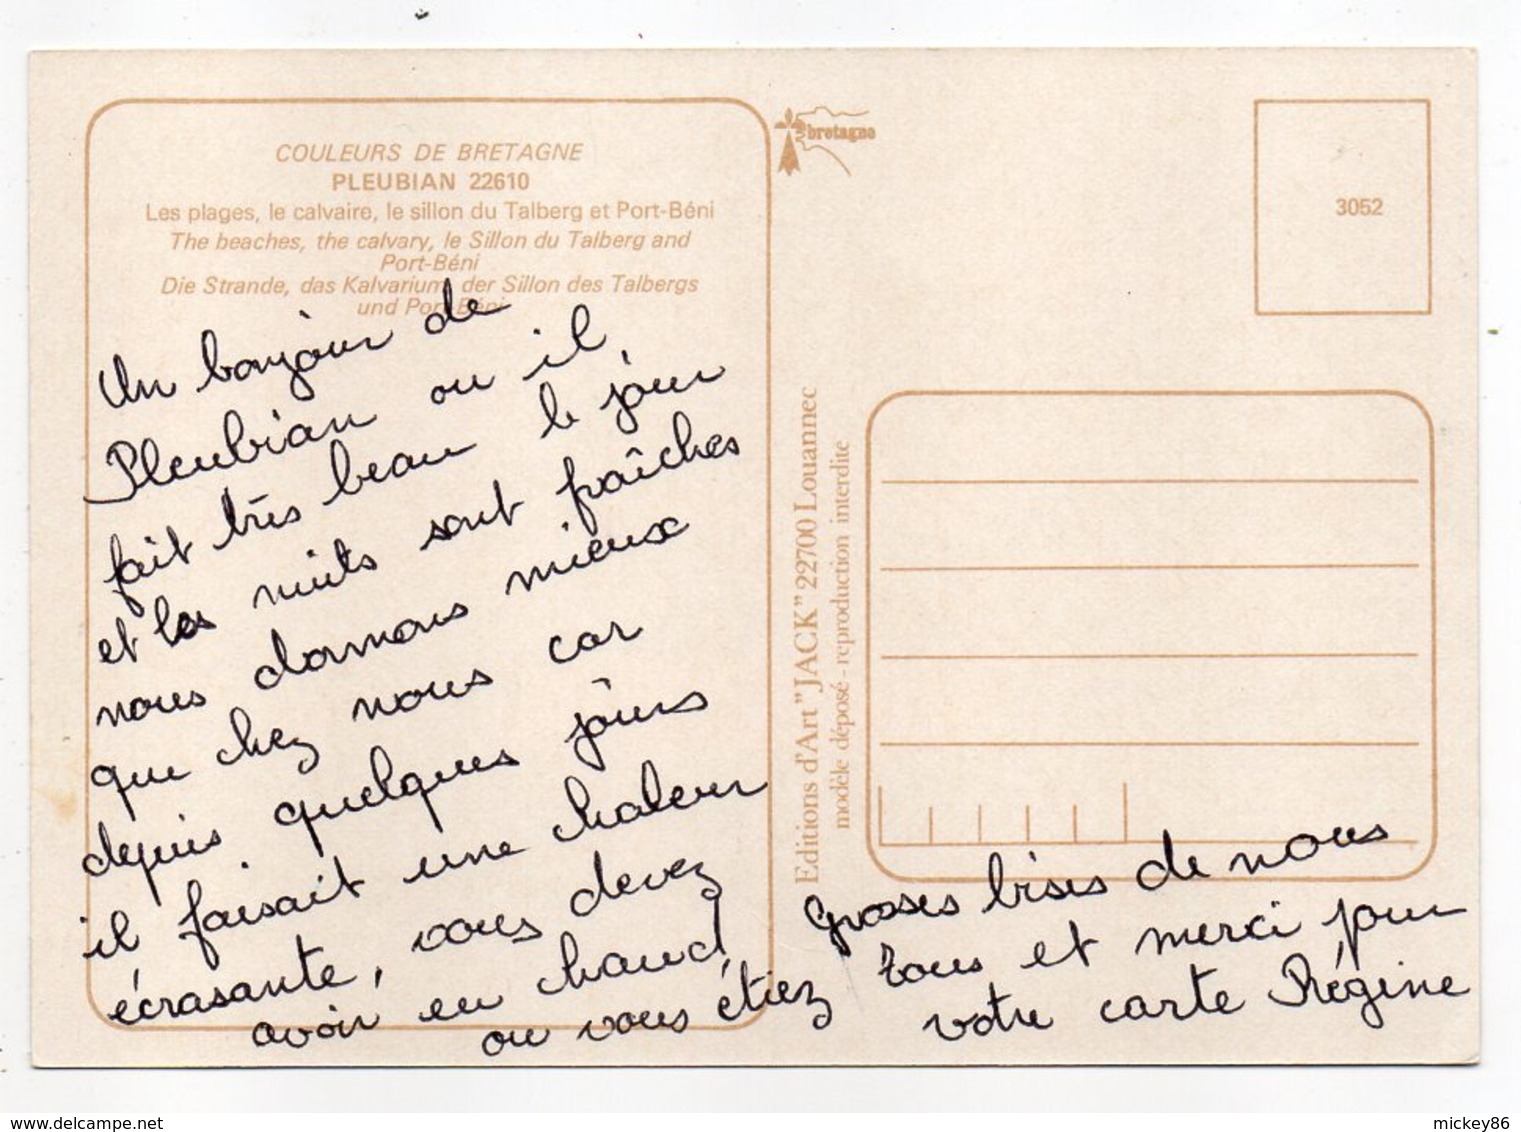 COULEURS DE BRETAGNE
PLEUBIAN 22610
Les plages, le calvaire, le sillon du Talberg et Port-Béni
The beaches, the calvary, le Sillon du Talberg and
Port-Béni
Die Strande, das Kalvarium, der Sillon des Talbergs
und Port-Béni
bretagne
3052
Editions d'Art "JACK" 22700 Louannec
modèle déposé - reproduction interdite
Un bonjour de
Pleubian ou il
fait très beau le jour
et les nuits sont fraîches
nous dormons mieux
que chez nous car
depuis quelques jours
il faisait une chaleur
écrasante, vous devez
avoir eu chaud
ou vous étiez
Grosses bises de nous
tous et merci pour
votre carte Régine
mickey86